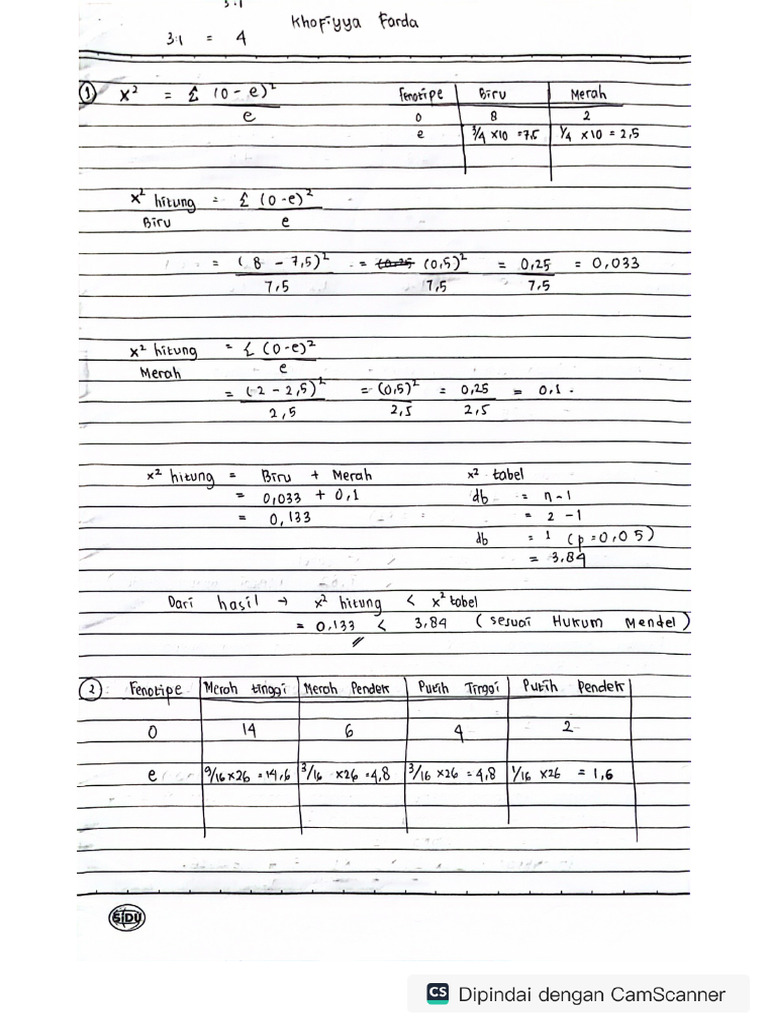 3:1
Khofiyya Farda
3:1 = 4
① x² = Σ (o - e)² / e
Fenotipe | Biru | Merah
o | 8 | 2
e | 3/4 x10 = 7.5 | 1/4 x 10 = 2,5
x² hitung Biru = Σ (o-e)² / e
= (8 - 7,5)² / 7,5 = (0,5)² / 7,5 = 0,25 / 7.5 = 0,033
x² hitung Merah = Σ (o-e)² / e
= (2 - 2,5)² / 2,5 = (0,5)² / 2,5 = 0,25 / 2,5 = 0.1.
x² hitung = Biru + Merah
= 0,033 + 0,1
= 0,133
x² tabel
db = n-1
= 2 -1
db = 1 (p=0,05)
= 3.84
Dari hasil → x² hitung < x² tabel
= 0.133 < 3,84 (sesuai Hukum Mendel)
② Fenotipe | Merah tinggi | Merah Pendek | Putih Tinggi | Putih Pendek
o | 14 | 6 | 4 | 2
e | 9/16 x26 = 14,6 | 3/16 x26 = 4,8 | 3/16 x26 = 4,8 | 1/16 x26 = 1,6
SIDU
CS Dipindai dengan CamScanner